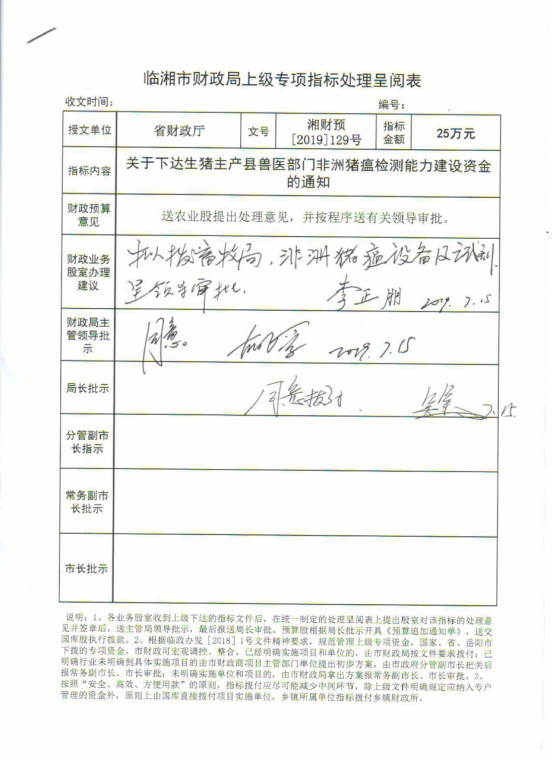 临湘市财政局上级专项指标处理呈阅表
收文时间： 编号：
授文单位 省财政厅 文号 湘财预[2019]129号 指标金额 25万元
指标内容 关于下达生猪主产县兽医部门非洲猪瘟检测能力建设资金
的通知
财政预算
意见 送农业股提出处理意见，并按程序送有关领导审批。
财政业务
股室办理
建议 拟拨畜牧局，非洲猪瘟设备及试剂.
呈领导审批. 李正朋 2019.7.15
财政局主
管领导批
示 同意. 2019.7.15
局长批示 同意拨付. 7.15.
分管副市
长指示
常务副市
长批示
市长批示
说明：1、各业务股室收到上级下达的指标文件后，在统一制定的处理呈阅表上提出股室对该指标的处理意
见并签章后，送主管局领导批示，最后报送局长审批。预算股根据局长批示开具《预算追加通知单》，送交
国库股执行拨款。2、根据临政办发［2018］1号文件精神要求，规范管理上级专项资金，国家、省、岳阳市
下拨的专项资金，市财政可宏观调控、整合，已经明确实施项目和单位的，由市财政局按文件要求拨付；已
明确行业未明确到具体实施项目的由市财政商项目主管部门单位提出初步方案，由市政府分管副市长把关后
报常务副市长、市长审批；未明确实施单位和项目的，由市财政局拿出方案报常务副市长、市长审批。3、
按照“安全、高效、方便用款”的原则，指标拨付应尽可能减少中间环节，除上级文件明确规定应纳入专户
管理的资金外，原则上由国库直接拨付项目实施单位，乡镇所属单位指标拨付乡镇财政所。